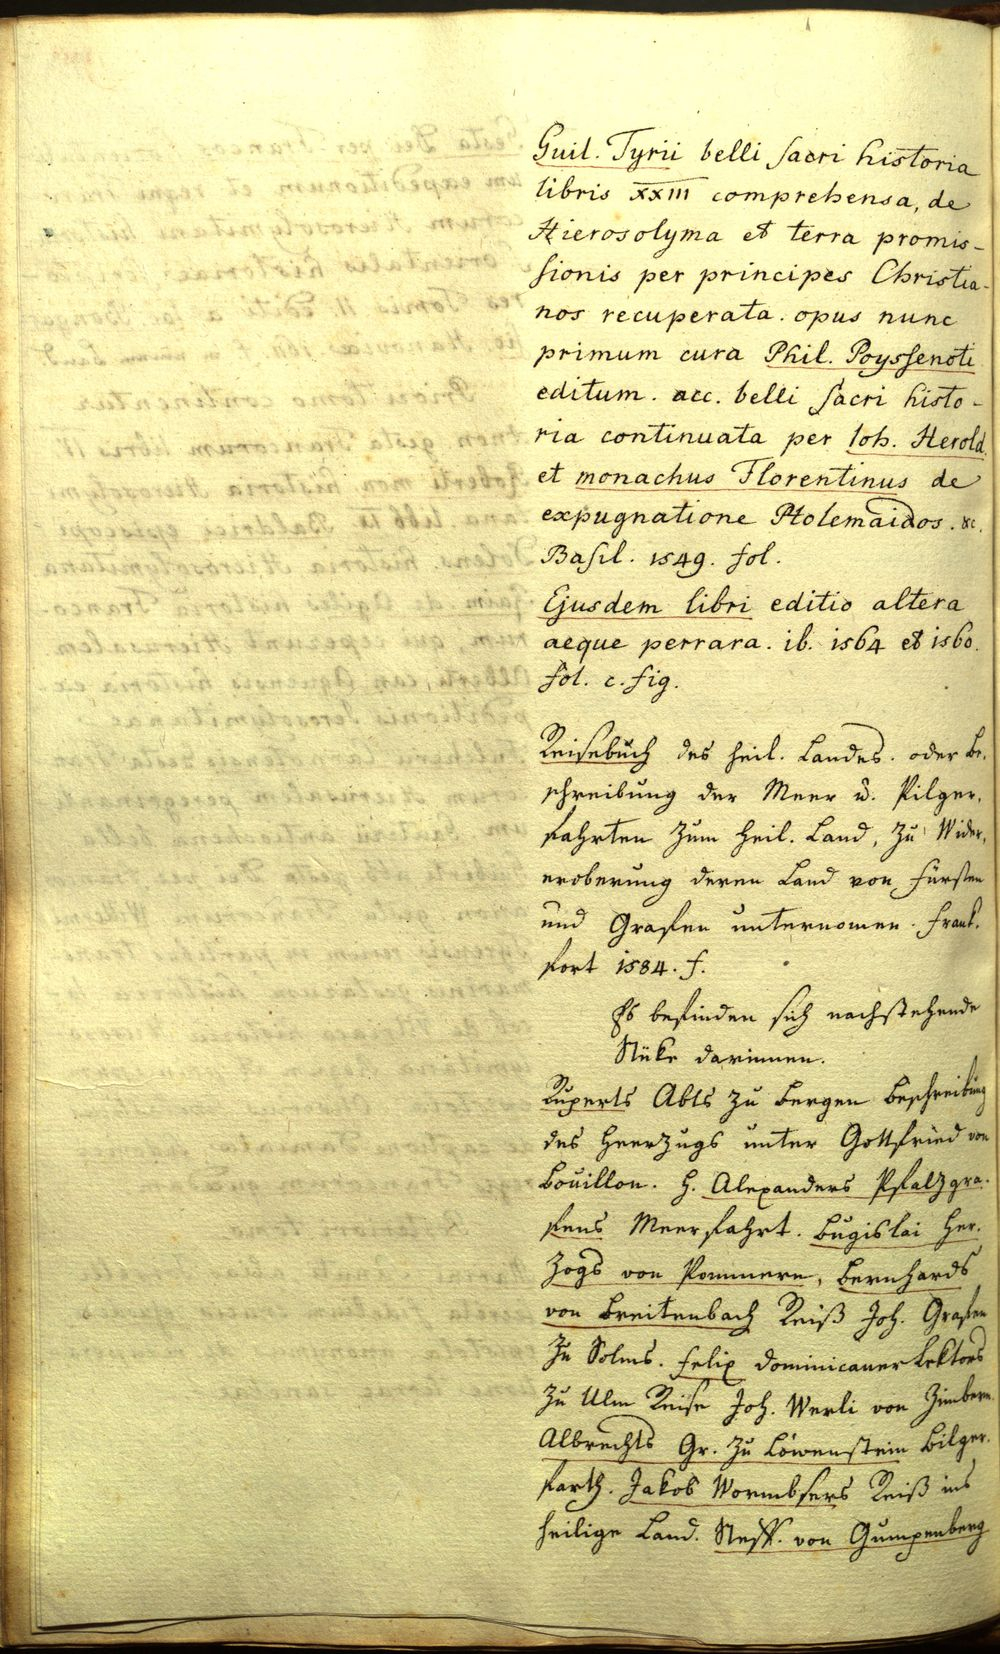 Guil. Tyrii belli sacri historia
libris XXIII comprehensa, de
Hierosolyma et terra promis-
sionis per principes Christia-
nos recuperata. opus nunc
primum cura Phil. Poyssenoti
editum. acc. belli sacri histo-
ria continuata per Joh. Herold.
et monachus Florentinus de
expugnatione Ptolemaidos. &c.
Basil. 1549. fol.
Ejusdem libri editio altera
aeque perrara. ib. 1564 et 1560.
fol. c. fig.
Reisebuch des heil. Landes. oder Be-
schreibung der Meer u. Pilger-
fahrten zum heil. Land, zu Wider-
eroberung deren Land von Fürsten
und Grafen unternomen. Frank-
fort 1584. f.
Es befinden sich nachstehende
Stüke darinnen.
Ruperts Abts zu Bergen Beschreibung
des Heerzugs unter Gottfried von
Bouillon. H. Alexanders Pfalzgra-
fens Meerfahrt. Bugislai Her-
zogs von Pommern, Bernhards
von Breitenbach Reiß Joh. Grafen
zu Solms. Felix Dominicaner Lektors
zu Ulm Reise Joh. Werli von Zimbern.
Albrechts Gr. zu Löwenstein Bilger-
farth. Jakob Wormbsers Reiß ins
heilige Land. Steff. von Gumpenberg